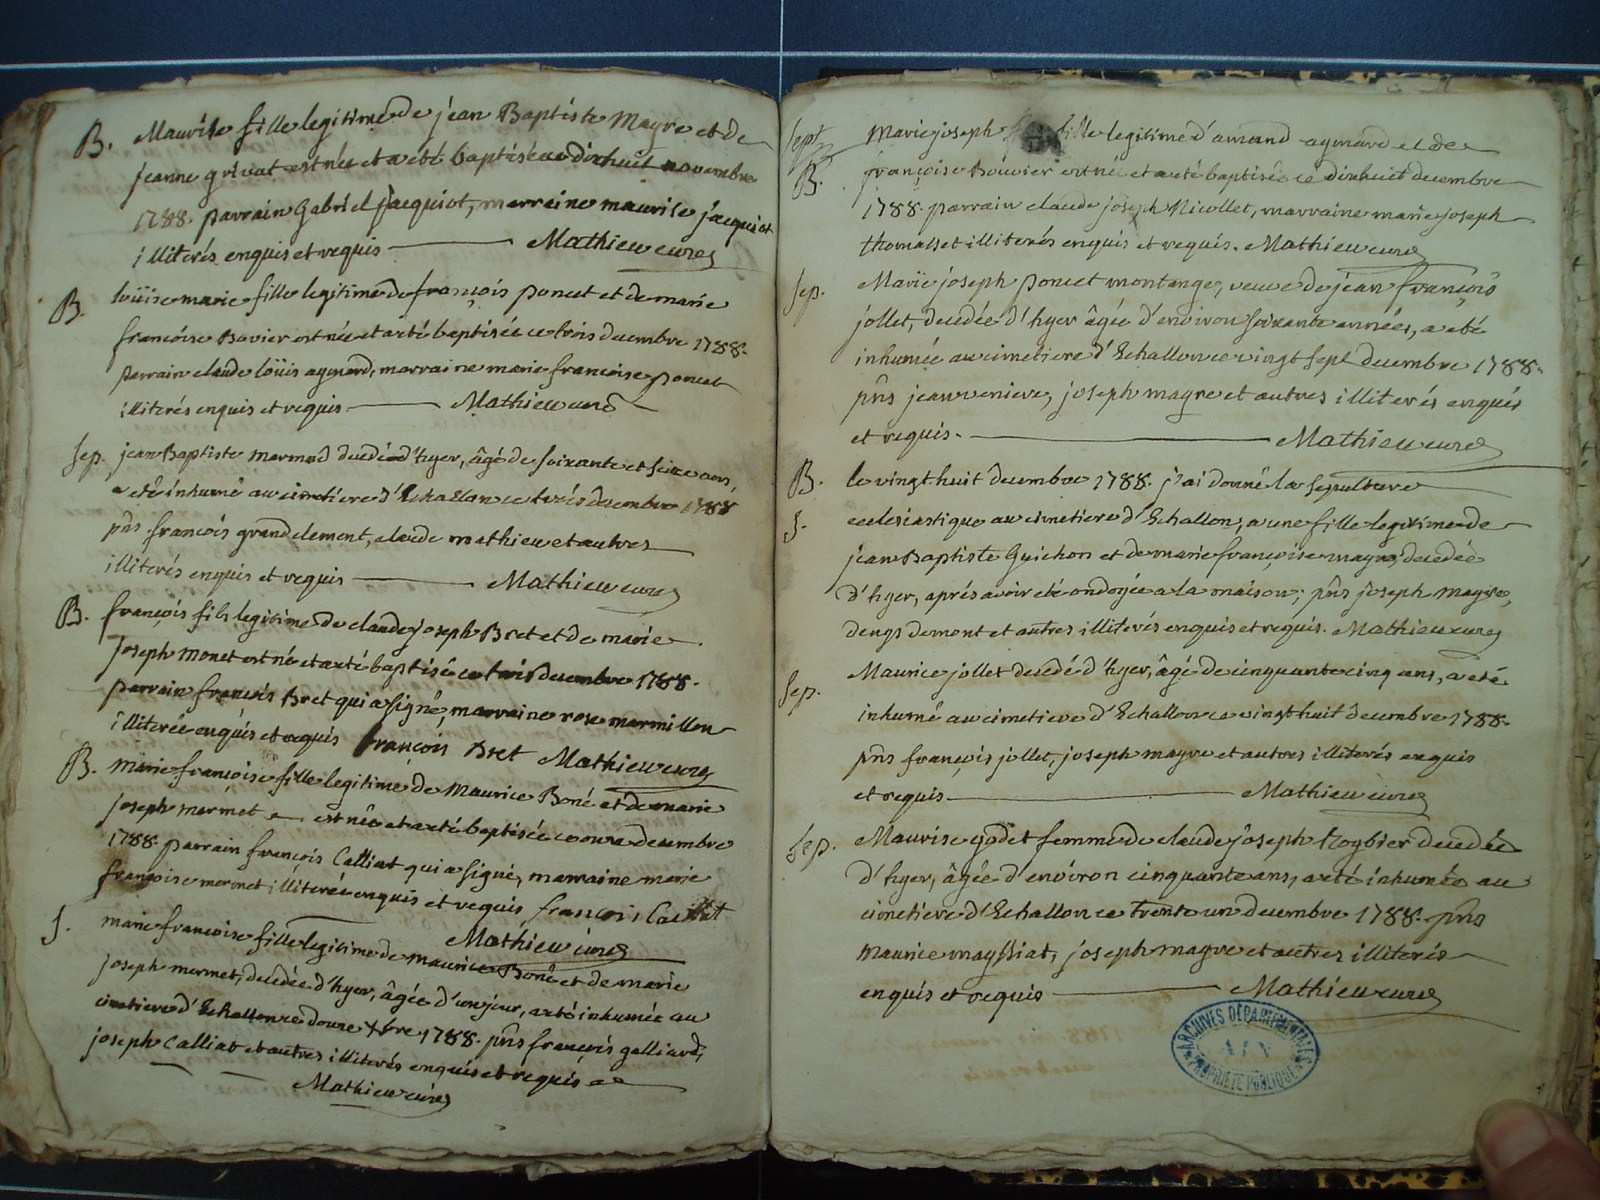 B. Maurise fille legitime de jean Baptiste Mayre et de
jeanne grivat est née et a eté baptisée ce dixhuit novembre
1788. parrain Gabriel jacquiot, marraine maurise jacquiot
illiterés enquis et requis Mathieu curé
B. loüise marie fille legitime de françois poncet et de marie
françoise Bovier est née et a eté baptisée ce trois decembre 1788.
parrain claude loüis aymard, marraine marie françoise poncet
illiterés enquis et requis Mathieu curé
Sep. jean Baptiste mermed decedé d'hyer, âgé de soixante et seize ans,
a eté inhumé au cimetiere d'Echallon ce trois decembre 1788
pñs françois grandclement, claude mathieu et autres
illiterés enquis et requis Mathieu curé
B. françois fils legitime de claude joseph Bret et de marie
joseph monet est né et a eté baptisé ce trois decembre 1788.
parrain françois Bret qui a signé, marraine rose marmillon
illiterée enquis et requis françois Bret Mathieu curé
B. marie françoise fille legitime de Maurice Boné et de marie
joseph mermet est née et a eté baptisée ce onze decembre
1788. parrain françois Calliat qui a signé, marraine marie
françoise mermet illiterée enquis et requis françois Calliat
Mathieu curé
S. marie françoise fille legitime de maurice Boné et de marie
joseph mermet, decedée d'hyer, âgée d'un jour, a eté inhumée au
cimetiere d'Echallon ce douze Xbre 1788. pñs françois galliard,
joseph Calliat et autres illiterés enquis et requis
Mathieu curé
Sept
B. Marie joseph fille legitime d'amand aymard et de
françoise Bouvier est né et a eté baptisée ce dixhuit decembre
1788. parrain claude joseph Nicollet, marraine marie joseph
thomasset illiterés enquis et requis. Mathieu curé
Sep. Marie joseph poncet montange, veuve de jean françois
jollet, decedée d'hyer âgée d'environ soixante années, a eté
inhumée au cimetiere d'Echallon ce vingt sept decembre 1788.
pñs jean veniere, joseph mayre et autres illiterés enquis
et requis. Mathieu curé
B. le vingt huit decembre 1788. j'ai donné la sepulture
S. ecclesiastique au cimetiere d'Echallon, a une fille legitime de
jean Baptiste Guichon et de marie françoise mayre, decedée
d'hyer, aprés avoir eté ondoyée a la maison; pñs joseph mayre,
denys demont et autres illiterés enquis et requis. Mathieu curé
Sep. Maurice jollet decedé d'hyer, âgé de cinquante cinq ans, a eté
inhumé au cimetiere d'Echallon ce vingt huit decembre 1788.
pñs françois jollet, joseph mayre et autres illiterés enquis
et requis Mathieu curé
Sep. Maurise godet femme de claude joseph decedée
d'hyer, âgée d'environ cinquante ans, a eté inhumée au
cimetiere d'Echallon ce trente un decembre 1788. pñs
Maurice mayssiat, joseph mayre et autres illiterés
enquis et requis Mathieu curé
ARCHIVES DÉPARTEMENTALES
AIN
PROPRIÉTÉ PUBLIQUE